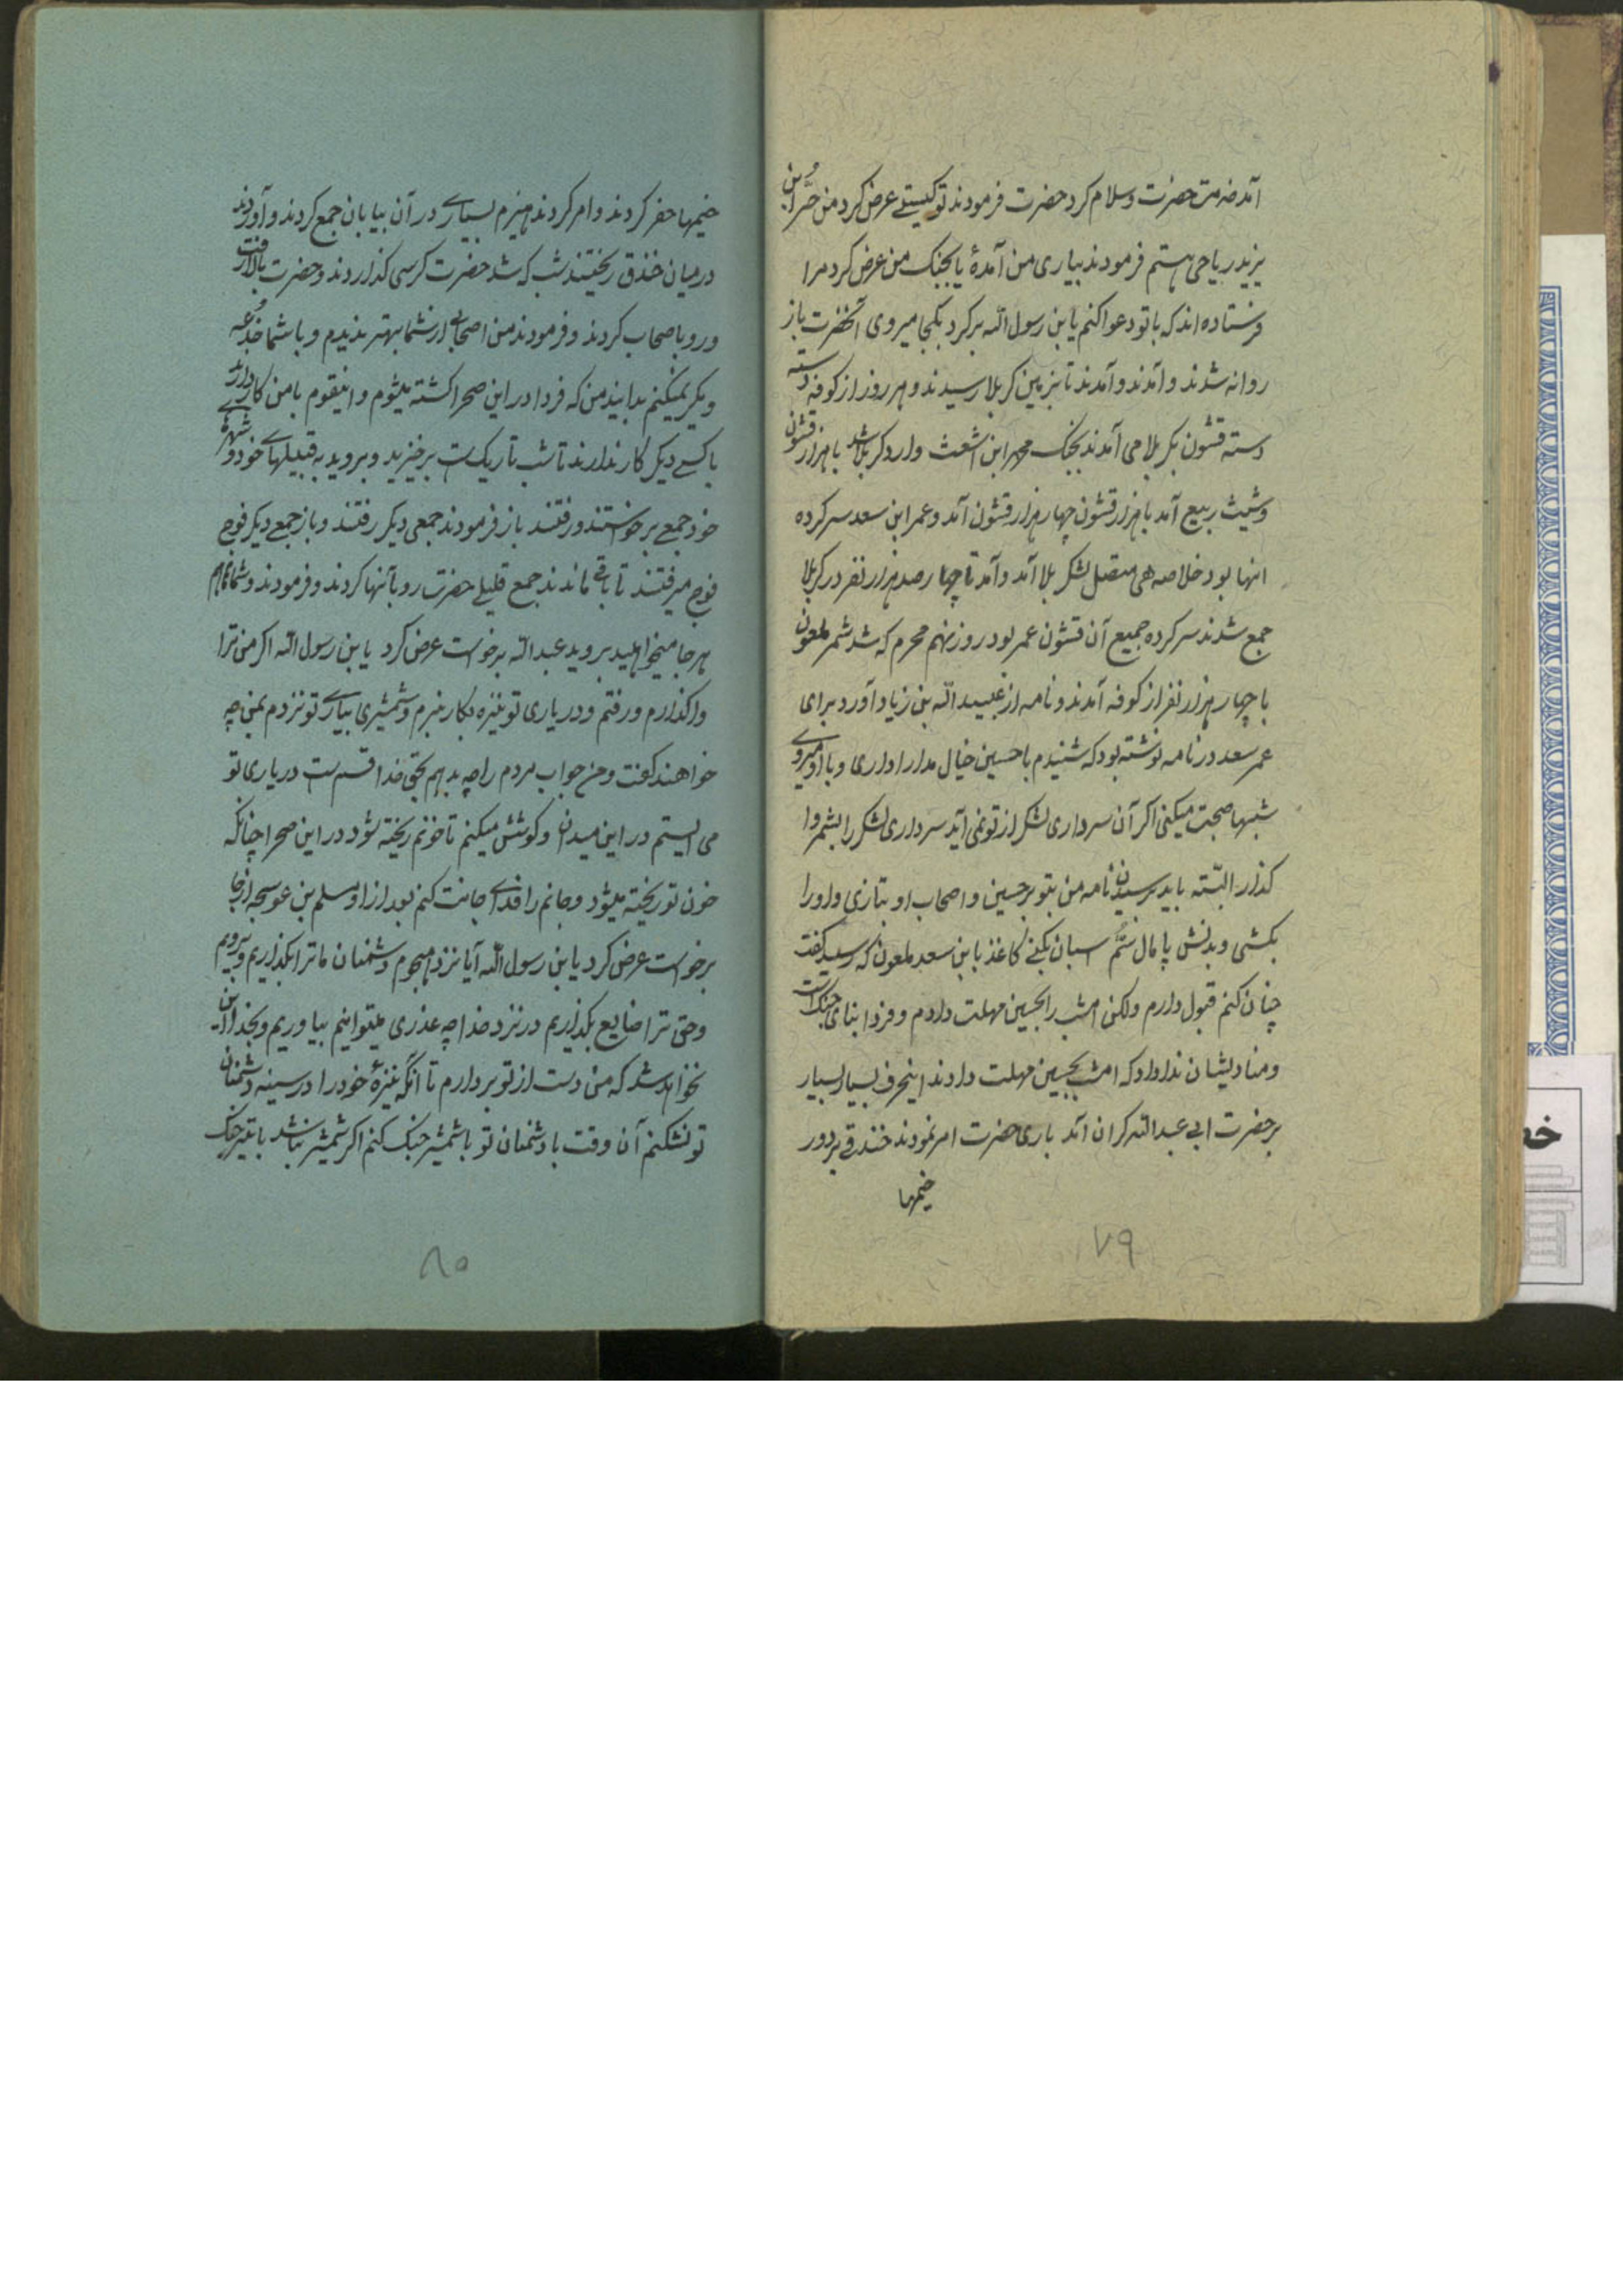 آمد خدمت حضرت و سلام کرد حضرت فرمودند تو کیستے عرض کرد من حُر ابن
یزید ریاحی هستم فرمودند بیاری من آمدهٔ یا بجنک من عرض کرد مرا
فرستاده اند که با تو دعوا کنم یا بن رسول الله برکرد بکجا میروی آنحضرت باز
روانه شدند و آمدند و آمدند تا بزمین کربلا رسیدند و هر روز از کوفه دسته
دسته قشون بکربلا می آمدند بجنک محمد ابن اشعث وارد کربلا شد با هزار قشون
و شیث ربیع آمد با هزار قشون چهار هزار قشون آمد و عمر ابن سعد سر کرده
انها بود خلاصه هی متصل لشکر بلا آمد و آمد تا چهار صد هزار نفر در کربلا
جمع شدند سر کرده جمیع آن قشون عمر بود روز نهم محرم که شد شمر ملعون
با چهار هزار نفر از کوفه آمدند و نامه از عبید الله بن زیاد آورد برای
عمر سعد در نامه نوشته بود که شنیدم با حسین خیال مدارا داری و با او میروے
شبها صحبت میکنی اکر آن سرداری لشکر از تو نمی آید سرداری لشکر را بشمر وا
کذار البّته باید برسیدن نامه من بتو بر حسین و اصحاب او بتازی و او را
بکشی و بدنش پا مال سُّم اسبان بکنے کاغذ با بن سعد ملعون که رسید کفت
چنان کنم قبول دارم ولکن امشب را بحسین مهلت دادم و فردا بنای جنک است
و منادیشان ندا داد که امشب بحسین مهلت دادند اینحرف بسیار بسیار
بر حضرت ابی عبد الله کران آمد باری حضرت امر نمودند خندقے بر دور
خیمها
۷۹
خیمها حفر کردند و امر کردند هیزم بسیارے در آن بیابان جمع کردند و آوردند
در میان خندق ریختند شب که شد حضرت کرسی کذاردند و حضرت بالا رفت
و رو باصحاب کردند و فرمودند من اصحابے از شما بهتر ندیدم و با شما خدُعه
و مکر نمیکنم بدانید من که فردا در این صحرا کشته میشوم و اینقوم با من کار دارند
با کسے دیکر کار ندارند تا شب تاریک است بر خیزید و بروید به قبیلهاے خود و شهرهاے
خود جمعے بر خواستند و رفتند باز فرمودند جمعی دیکر رفتند و باز جمعے دیکر فوج
فوج میرفتند تا باقے ماندند جمع قلیلے حضرت رو بآنها کردند و فرمودند و شما هم
هر جا میخواهید بروید عبد الله بر خواست عرض کرد یا بن رسول الله اکر من ترا
واکذارم و رفتم و در یاری تو نیزه بکار نبرم و شمشیری بیارے تو نزدم بمن چه
خواهند کفت و من جواب مردم را چه بدهم بحق خدا قسم است در یاری تو
می ایستم در این میدان و کوشش میکنم تا خونم ریخته شود در این صحرا چنانکه
خون تو ریخته میشود و جانم را فداے جانت کنم بعد از او مسلم بن عوسجه از جا
بر خواست عرض کرد یا بن رسول الله آیا نزد هجوم دشمنان ما ترا بکذاریم و برویم
و حق ترا ضایع بکذاریم در نزد خدا چه عذری میتوانیم بیاوریم و بخدا این
نخواهد شد که من دست از تو بردارم تا آنکه نیزهٔ خود را در سینه دشمنان
تو نشکنم آن وقت با دشمنان تو با شمشیر جنک کنم اکر شمشیر نباشد با تیر جنک
۸۰